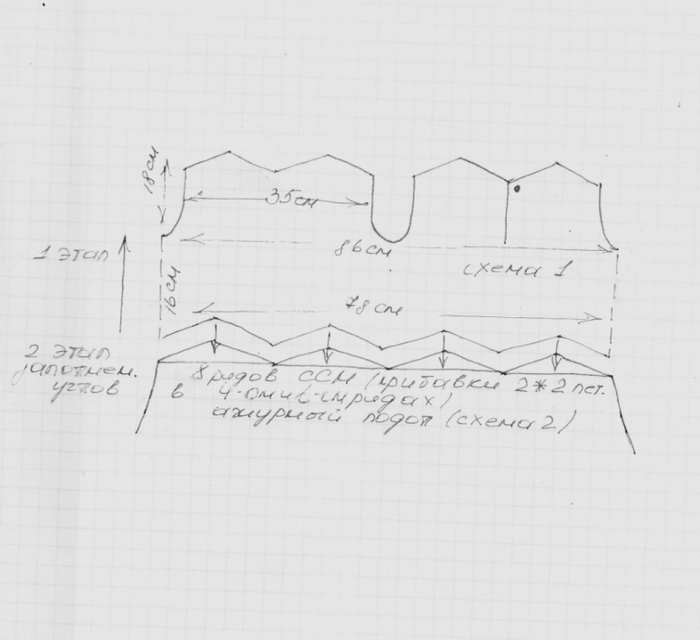 18см
35см
86см
1 этап
схема 1
16см
78см
2 этап
заполнен.
углов
8 рядов ССН (прибавки 2*2 пет.
в 4-ом и 6-м рядах)
ажурный подол (схема 2)